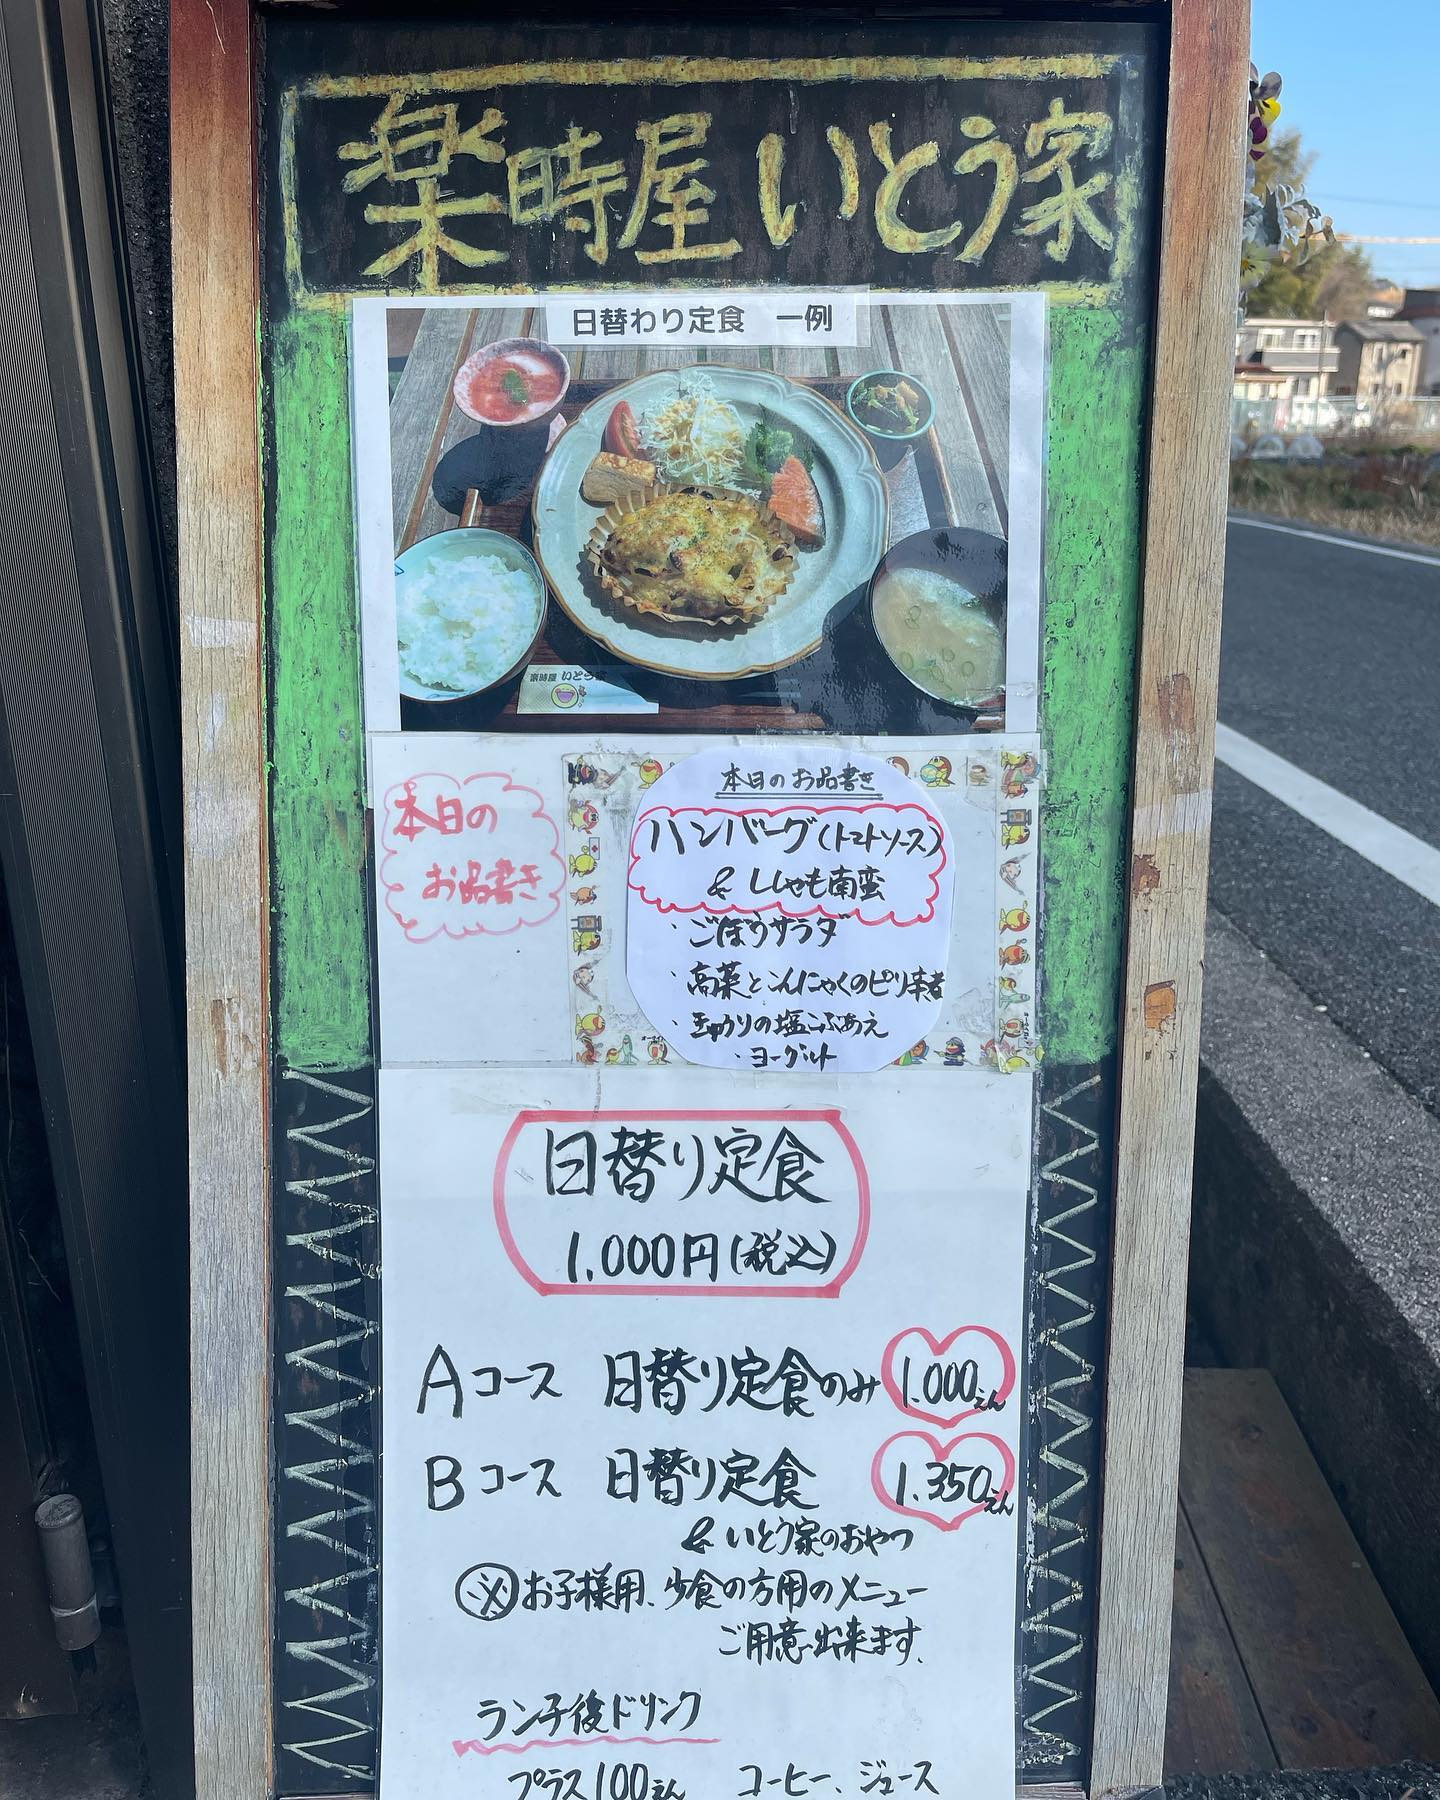 楽時屋 いとう家
日替わり定食 一例
楽時屋 いとう家
本日の
お品書き
本日のお品書き
ハンバーグ(トマトソース)
& ししゃも南蛮
・ごぼうサラダ
・高菜とこんにゃくのピリ辛煮
・きゅうりの塩こぶあえ
・ヨーグルト
日替り定食
1.000円(税込)
Aコース 日替り定食のみ 1.000えん
Bコース 日替り定食 1.350えん
& いとう家のおやつ
※お子様用、少食の方用のメニュー
ご用意出来ます。
ランチ後ドリンク
プラス100えん コーヒー、ジュース